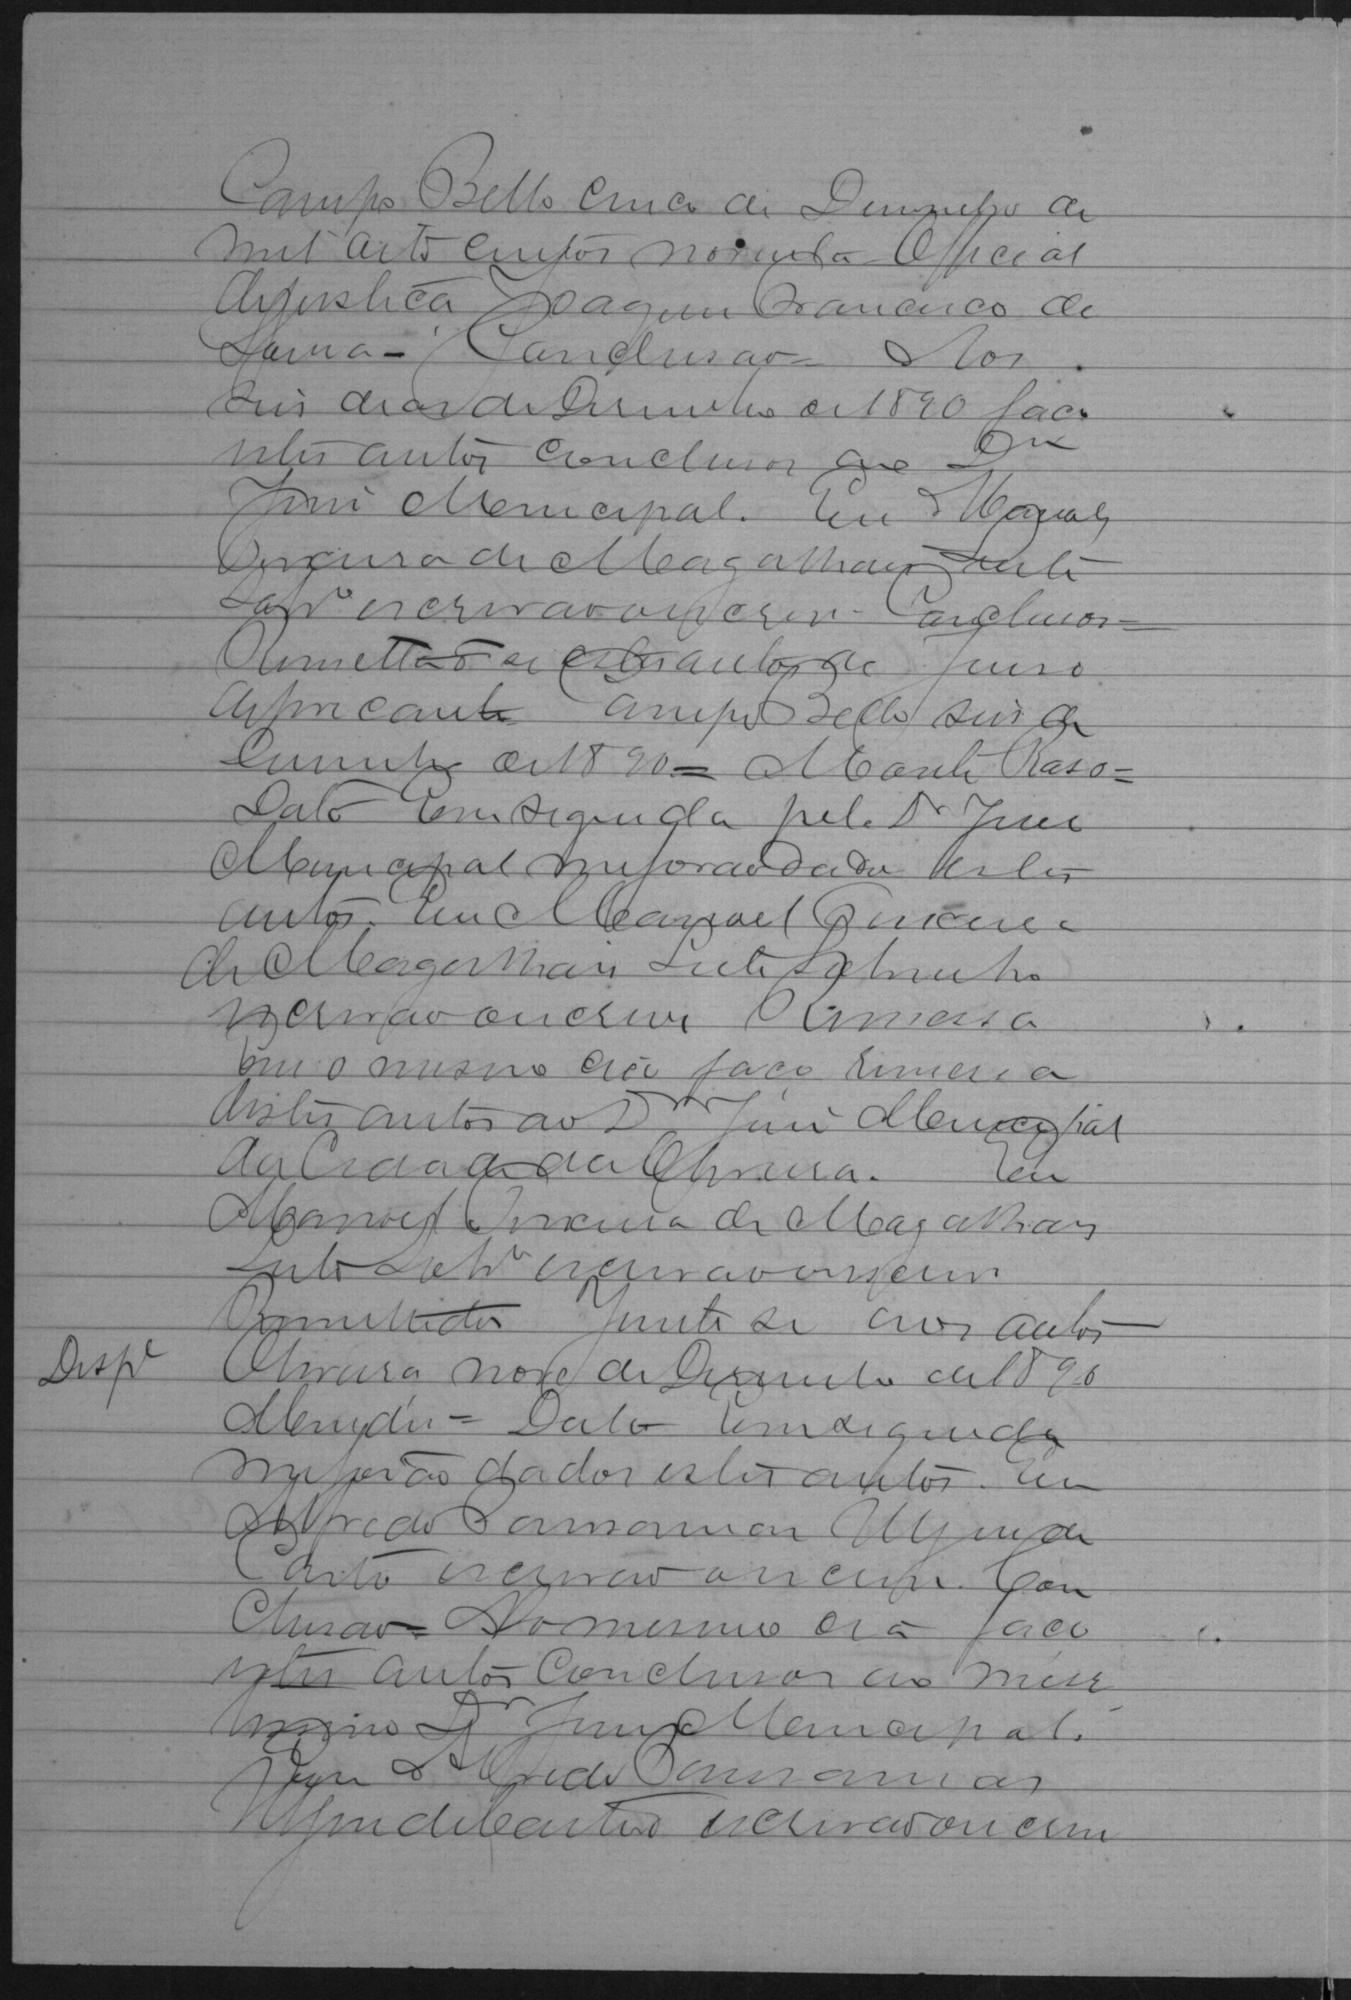 Campo Bello cinco de Desembro de
mil oito centos noventa Official
de justiça Joaquim Francisco de
Conclusão = Aos
seis dias de Desembro de 1890 faço
estes autos conclusos ao Dr
Juis Municipal. Eu Manoel
de Magalhães Leite
Sobr⁰ escrivão o escrevi. Conclusos =
Remettão se estes autos ao Juiso
deprecante Campo Bello seis de
Desembro de 1890 = Monte Raso =
Data Em seguida pelo Dr Juis
Municipal me forão dados estes
autos. Eu Manoel
de Magalhães Leite Sobrinho
escrivão o escrevi Remessa
Em o mesmo dia faço remessa
destes autos ao Dr Juis Municipal
da Cidade da Oliveira. Eu
Manoel de Magalhães
Leite Sobr⁰ escrivão o escrevi
Remettidos Junte se aos autos
Desp⁰ Oliveira nove de Desembro de 1890
Data Em seguida
me forão dados estes autos. Eu
Alfredo
Castro escrivão o escrevi. Con
clusão = No mesmo dia faço
estes autos conclusos ao mere
Dr Juis Municipal.
Eu Alfredo
de Castro escrivão o escrevi